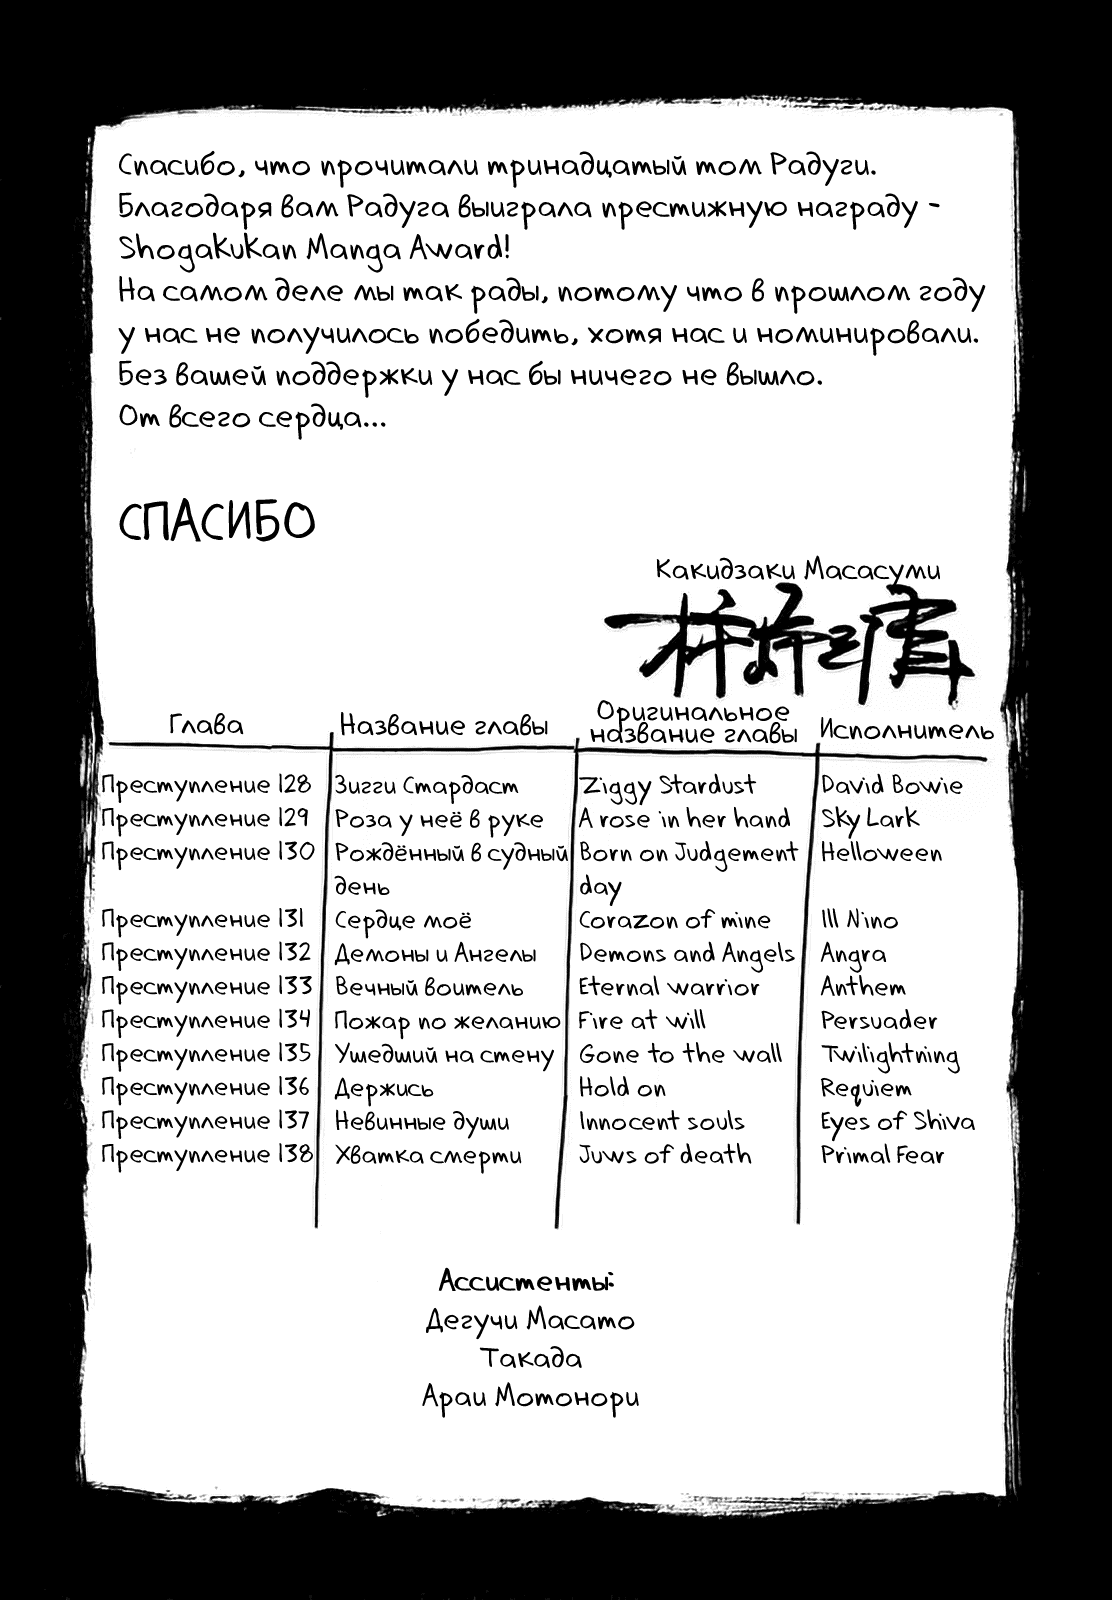 Спасибо, что прочитали тринадцатый том Радуги.
Благодаря вам Радуга выиграла престижную награду -
Shogakukan Manga Award!
На самом деле мы так рады, потому что в прошлом году
у нас не получилось победить, хотя нас и номинировали.
Без вашей поддержки у нас бы ничего не вышло.
От всего сердца...
СПАСИБО
Какидзаки Масасуми
Глава Название главы Оригинальное название главы Исполнитель
Преступление 128 Зигги Стардаст Ziggy Stardust David Bowie
Преступление 129 Роза у неё в руке A rose in her hand Sky Lark
Преступление 130 Рождённый в судный день Born on Judgement day Helloween
Преступление 131 Сердце моё Corazon of mine Ill Nino
Преступление 132 Демоны и Ангелы Demons and Angels Angra
Преступление 133 Вечный воитель Eternal warrior Anthem
Преступление 134 Пожар по желанию Fire at will Persuader
Преступление 135 Ушедший на стену Gone to the wall Twilightning
Преступление 136 Держись Hold on Requiem
Преступление 137 Невинные души Innocent souls Eyes of Shiva
Преступление 138 Хватка смерти Juws of death Primal Fear
Ассистенты:
Дегучи Масато
Такада
Араи Мотонори